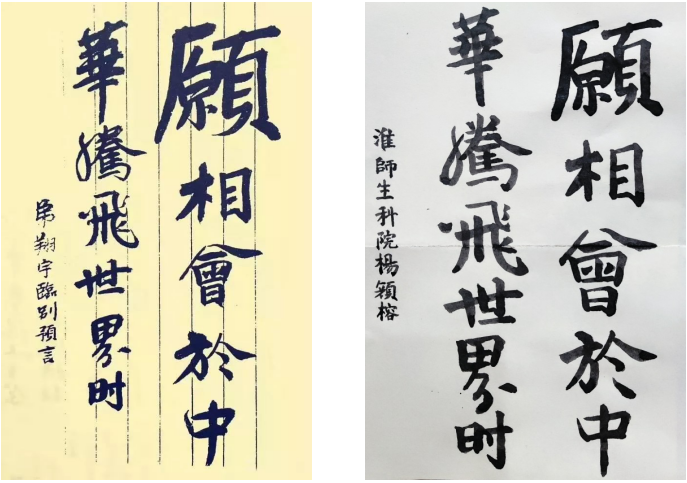 願相會於中
華騰飛世界时
弟翔宇臨別預言
願相會於中
華騰飛世界时
淮師生科院楊穎榕